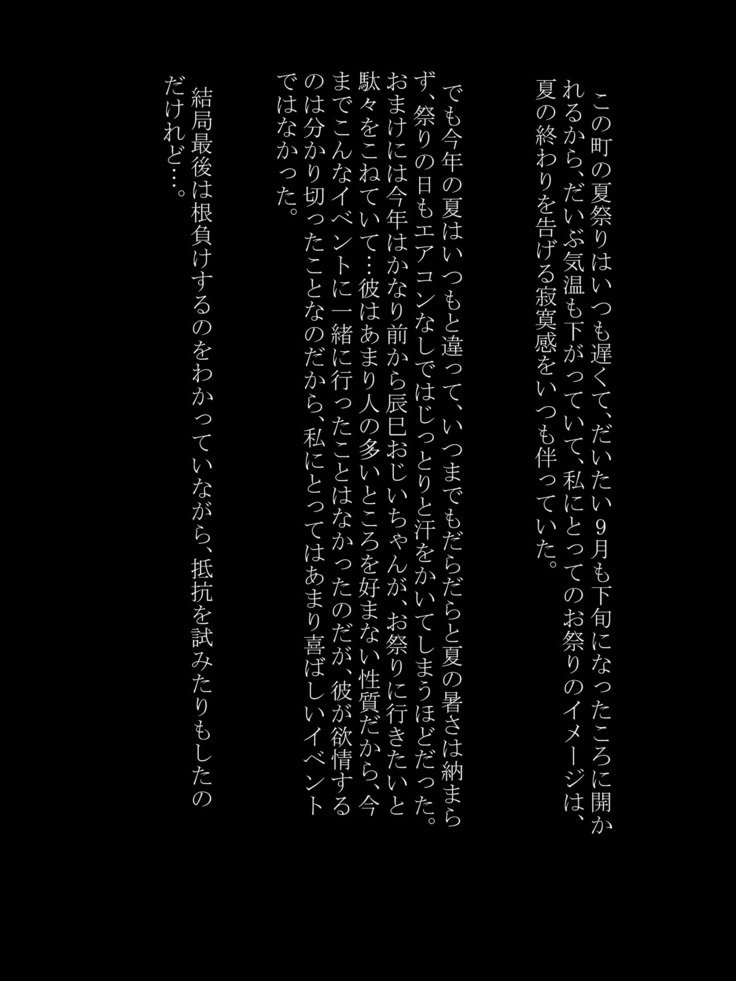 この町の夏祭りはいつも遅くて、だいたい9月も下旬になったころに開か
れるから、だいぶ気温も下がっていて、私にとってのお祭りのイメージは、
夏の終わりを告げる寂寞感をいつも伴っていた。
でも今年の夏はいつもと違って、いつまでもだらだらと夏の暑さは納まら
ず、祭りの日もエアコンなしではじっとりと汗をかいてしまうほどだった。
おまけには今年はかなり前から辰巳おじいちゃんが、お祭りに行きたいと
駄々をこねていて…彼はあまり人の多いところを好まない性質だから、今
までこんなイベントに一緒に行ったことはなかったのだが、彼が欲情する
のは分かり切ったことなのだから、私にとってはあまり喜ばしいイベント
ではなかった。
結局最後は根負けするのをわかっていながら、抵抗を試みたりもしたの
だけれど…。